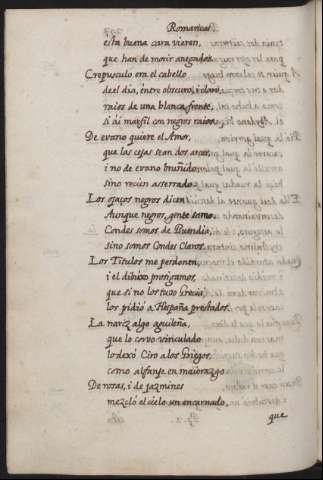 Romances.
esta buena cara vieren,
que han de morir anegados.
Crepusculo era el cabello
de el dia, entre obscuro, i claro,
raios de una blanca frente,
si ai marfil con negros raios.
De evano quiere el Amor,
que las cejas sean dos arcos,
i no de evano bruñido,
sino recien asserrado.
Los ojaços negros dicen
Aunque negros, gente somos
Condes somos de Buendia,
sino somos Condes Claros.
Los Titulos me perdonen,
i el dibuxo prosigamos,
que si no los tuvo Grecia
los pidiò a España prestados.
La nariz algo aguileña,
que lo corvo vinculado
lo dexó Ciro a los Griegos,
como alfange en maiorazgo
De rosas, i de jazmines
mezclò el cielo un encarnado,
que